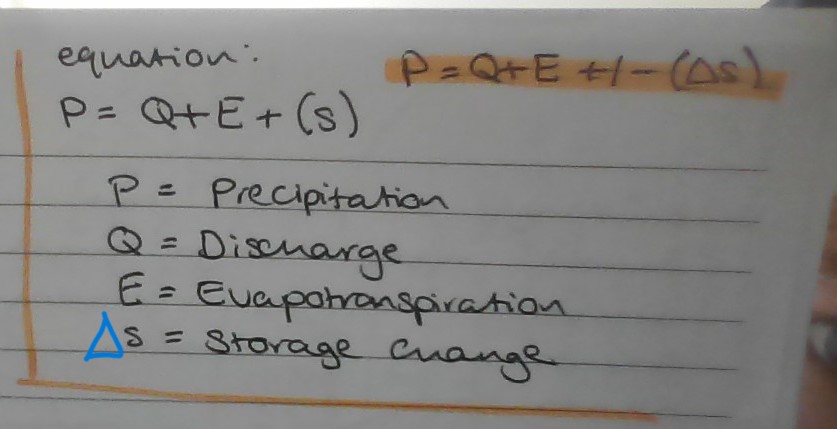 equation:
P = Q+E +/- (Δs)
P = Q+E+(s)
P = Precipitation
Q = Discharge
E = Evapotranspiration
Δs = Storage change